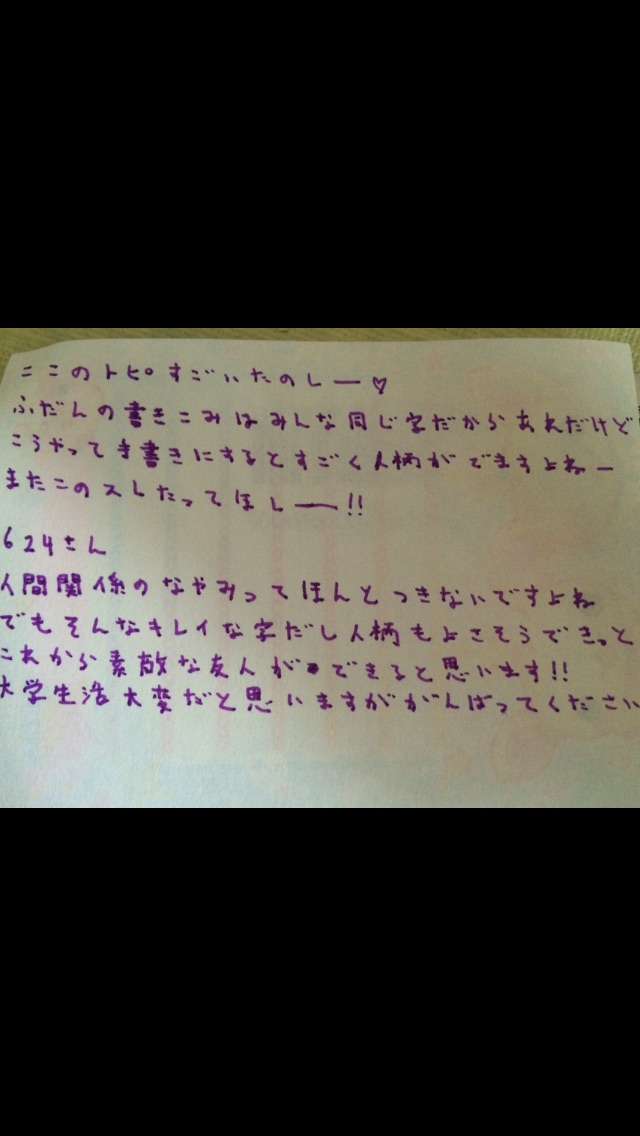 ここのトピすごいたのしー♡
ふだんの書きこみはみんな同じ字だからあれだけど
こうやって手書きにするとすごく人柄がでますよねー
またこのスレたってほしー!!
624さん
人間関係のなやみってほんとつきないですよね
でもそんなキレイな字だし人柄もよさそうできっと
これから素敵な友人ができると思います!!
大学生活大変だと思いますががんばってください